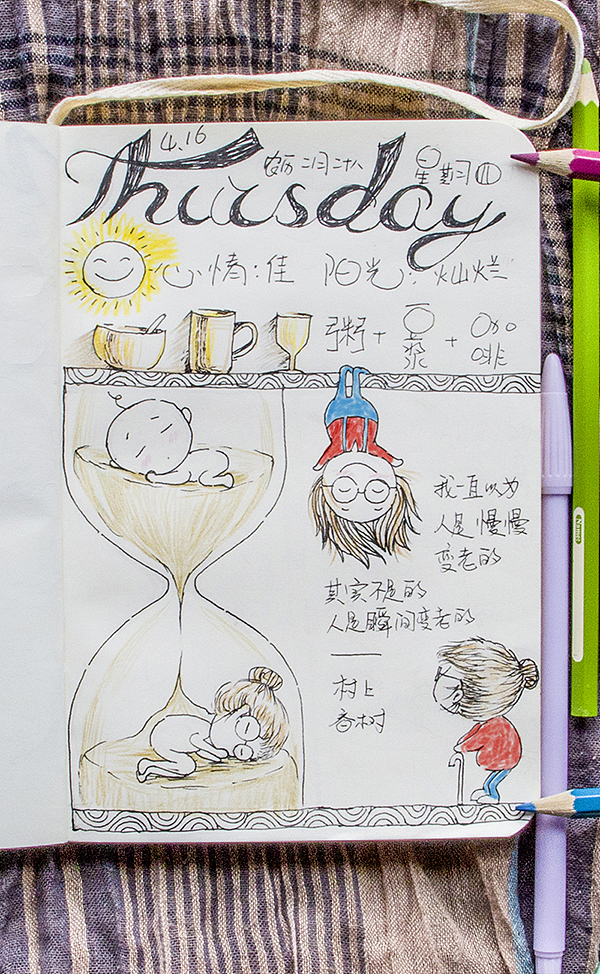 4.16
农历 二月廿八 星期四
Thursday
心情:佳 阳光:灿烂
粥+豆浆+咖啡
我一直以为
人是慢慢
变老的
其实不是的
人是瞬间变老的
——
村上
春树